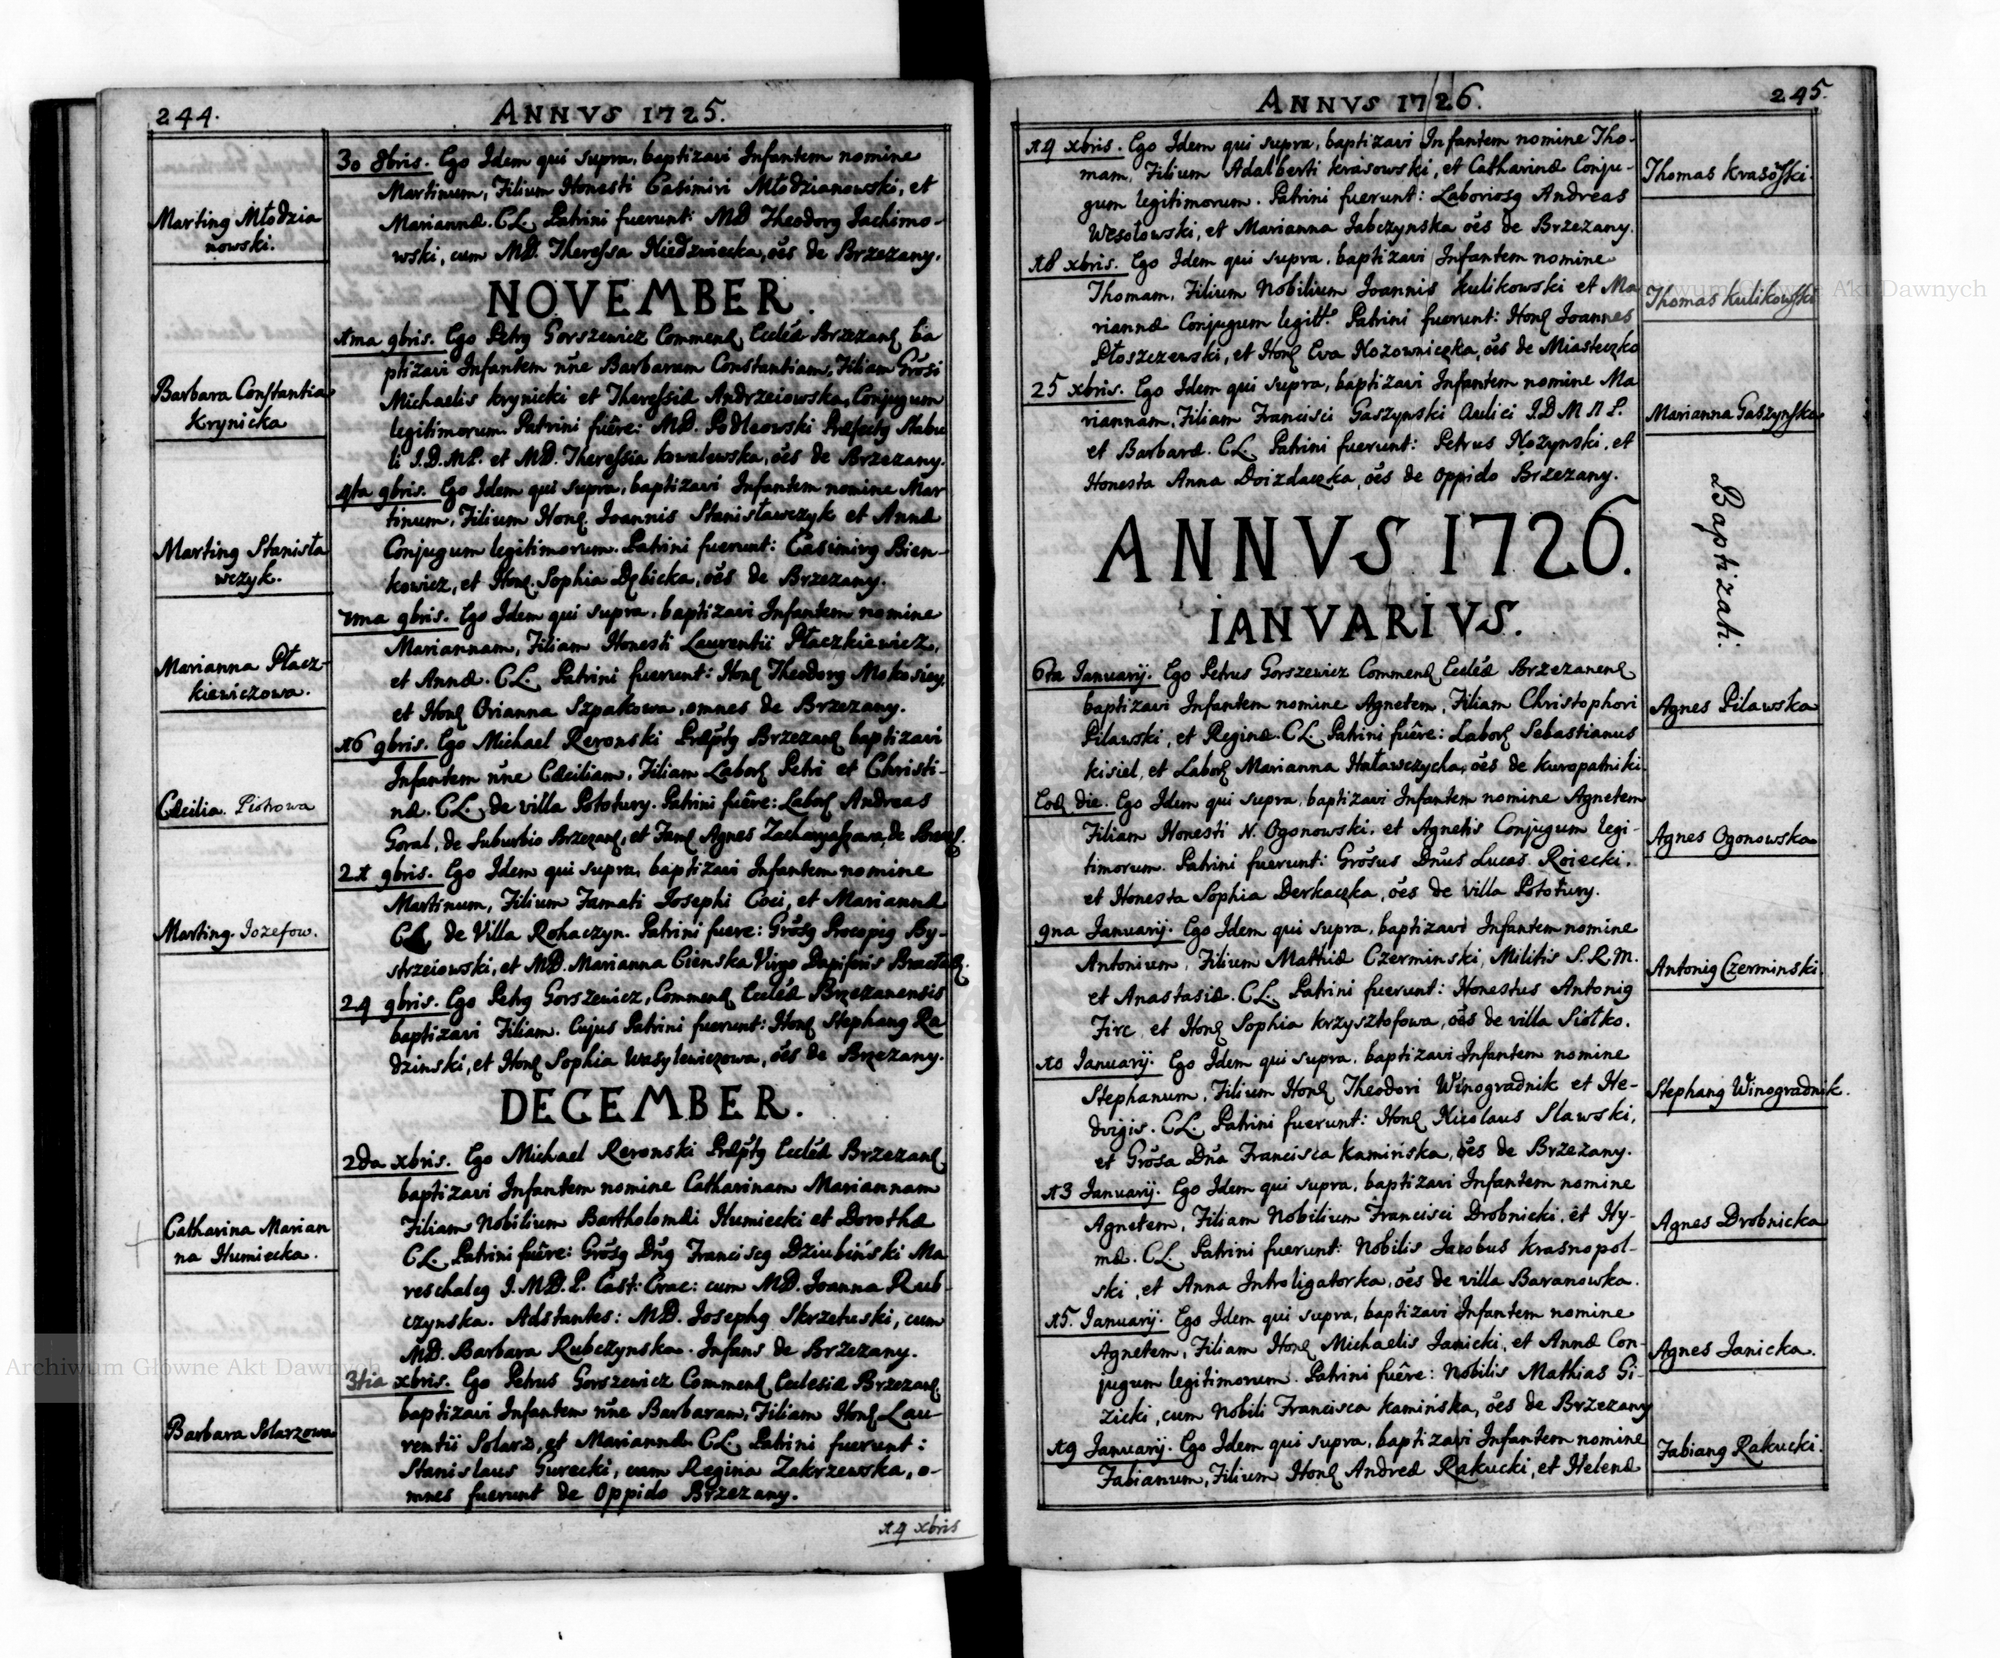 244.
ANNVS 1725.
30 8bris. Ego Idem qui supra, baptizavi Infantem nomine
Martinum, Filium Honesti Casimiri Młodzianowski, et
Mariannæ. CL. Patrini fuerunt: MD Theodorg Iachimo-
wski, cum MD. Theressa Niedzwiecka, oēs de Brzezany.
Marting Młodzia
nowski.
NOVEMBER.
1ma 9bris. Ego Petrg Gorszewicz Commend Eccleæ Brzezanę ba
ptizavi Infantem nñe Barbaram Constantiam, Filiam Grõsi
Michaelis Krynicki et Theressiæ Andrzeiowska, Conjugum
legitimorum. Patrini fuêre: MD. Podleowski Præfectg Stabu
li I.D.M.P. et MD. Theressia Kowalewska, oēs de Brzezany.
Barbara Constantia
Krynicka
4ta 9bris. Ego Idem qui supra, baptizavi Infantem nomine Mar
tinum, Filium Honę Ioannis Stanisławczyk et Annæ
Conjugum legitimorum. Patrini fuerunt: Casimirg Bien-
kowicz, et Honę Sophia Dębicka, oēs de Brzezany.
Marting Stanisła
wczyk.
7ma 9bris. Ego Idem qui supra, baptizavi Infantem nomine
Mariannam, Filiam Honesti Laurentii Płaczkiewicz,
et Annæ. CL. Patrini fuerunt: Honę Theodorg Mokosiey,
et Honę Orianna Szpakowa, omnes de Brzezany.
Marianna Płacz-
kiewiczowa.
16 9bris. Ego Michael Reronski Præptg Brzezanę baptizavi
Infantem nñe Cæciliam, Filiam Laborę Petri et Christi-
næ. CL. de villa Potutury. Patrini fuêre: Laborę Andreas
Goral, de Suburbio Brzezanę, et Famę Agnes Zacharyaszowa, de Brzezę.
Cæcilia Piotrowa
21 9bris. Ego Idem qui supra, baptizavi Infantem nomine
Martinum, Filium Famati Iosephi Coci, et Mariannæ
CL. de Villa Rohaczyn. Patrini fuere: Grõsg Procopig By-
strzeiowski, et MD. Marianna Cienska Virgo Dapiferis
Marting. Iozefow.
24 9bris. Ego Petrg Gorszewicz, Commend Eccleæ Brzezanensis
baptizavi Filiam. Cujus Patrini fuerunt: Honę Stephang Ra
dzinski, et Honę Sophia Wasylewiczowa, oēs de Brzezany.
DECEMBER.
2da xbris. Ego Michael Reronski Præptg Eccleæ Brzezanę
baptizavi Infantem nomine Catharinam Mariannam
Filiam Nobilium Bartholomæi Humiecki et Dorothæ
CL. Patrini fuêre: Grõsg Dñg Franciscg Dziubiński Ma
reschalcg I.M.D.P. Cast: Crac: cum MD. Ioanna Rub-
czynska. Adstantes: MD. Iosephg Skrzetuski, cum
MD. Barbara Rubczynska. Infans de Brzezany.
Catharina Marian
na Humiecka.
3tia xbris. Ego Petrus Gorszewicz Commend Ecclesiæ Brzezanę
baptizavi Infantem nñe Barbaram, Filiam Honę Lau-
rentii Solarz, et Mariannæ. CL. Patrini fuerunt:
Stanislaus Gurecki, cum Regina Zakrzewska, o-
mnes fuerunt de Oppido Brzezany.
Barbara Solarzowa
14 xbris
ANNVS 1726.
245.
14 xbris. Ego Idem qui supra, baptizavi Infantem nomine Tho-
mam, Filium Adalberti Krasowski, et Catharinæ Conju-
gum legitimorum. Patrini fuerunt: Laboriosg Andreas
Wesołowski, et Marianna Iabczynska oēs de Brzezany.
Thomas Krasõski.
18 xbris. Ego Idem qui supra, baptizavi Infantem nomine
Thomam, Filium Nobilium Ioannis Kulikowski et Ma
riannæ Conjugum legitt. Patrini fuerunt: Honę Ioannes
Płoszczewski, et Honę Eva Nozowniczka, oēs de Miasteczko
Thomas Kulikowski
25 xbris. Ego Idem qui supra, baptizavi Infantem nomine Ma
riannam, Filiam Francisci Gaszynski Aulici I.D M N P.
et Barbaræ. CL. Patrini fuerunt: Petrus Nozynski, et
Honesta Anna Doizdaczka, oēs de Oppido Brzezany.
Marianna Gaszynska
ANNVS 1726.
IANVARIVS.
Baptizati.
6ta Ianuarij. Ego Petrus Gorszewicz Commend Eccleæ Brzezanenę
baptizavi Infantem nomine Agnetem, Filiam Christophori
Pilawski, et Reginæ. CL. Patrini fuêre: Laborę Sebastianus
Kisiel, et Laborę Marianna Haławczycha, oēs de Kuropatniki.
Agnes Pilawska
Eodę die. Ego Idem qui supra, baptizavi Infantem nomine Agnetem
Filiam Honesti N. Ogonowski, et Agnetis Conjugum legi-
timorum. Patrini fuerunt: Grõsus Dñus Lucas Roiecki,
et Honesta Sophia Derkaczka, oēs de villa Potutury.
Agnes Ogonowska
9na Ianuarij. Ego Idem qui supra, baptizavi Infantem nomine
Antonium, Filium Mathiæ Czerminski, Militis S.R.M.
et Anastasiæ. CL. Patrini fuerunt: Honestus Antonig
Firc, et Honę Sophia Krzysztofowa, oēs de villa Siołko.
Antonig Czerminski.
10 Ianuarij. Ego Idem qui supra, baptizavi Infantem nomine
Stephanum, Filium Honę Theodori Winogradnik et He-
dvigis. CL. Patrini fuerunt: Honę Nicolaus Slawski,
et Grõsa Dña Francisca Kamińska, oēs de Brzezany.
Stephang Winogradnik.
13 Ianuarij. Ego Idem qui supra, baptizavi Infantem nomine
Agnetem, Filiam Nobilium Francisci Drobnicki, et Hy-
mæ. CL. Patrini fuerunt: Nobilis Iacobus Krasnopol-
ski, et Anna Introligatorka, oēs de villa Baranowka.
Agnes Drobnicka
15. Ianuarij. Ego Idem qui supra, baptizavi Infantem nomine
Agnetem, Filiam Honę Michaelis Ianicki, et Annæ Con-
jugum legitimorum. Patrini fuêre: Nobilis Mathias Gi-
zicki, cum Nobili Francisca Kamińska, oēs de Brzezany
Agnes Ianicka.
19 Ianuarij. Ego Idem qui supra, baptizavi Infantem nomine
Fabianum, Filium Honę Andreæ Rakucki, et Helenæ
Fabiang Rakucki.
Archiwum Główne Akt Dawnych